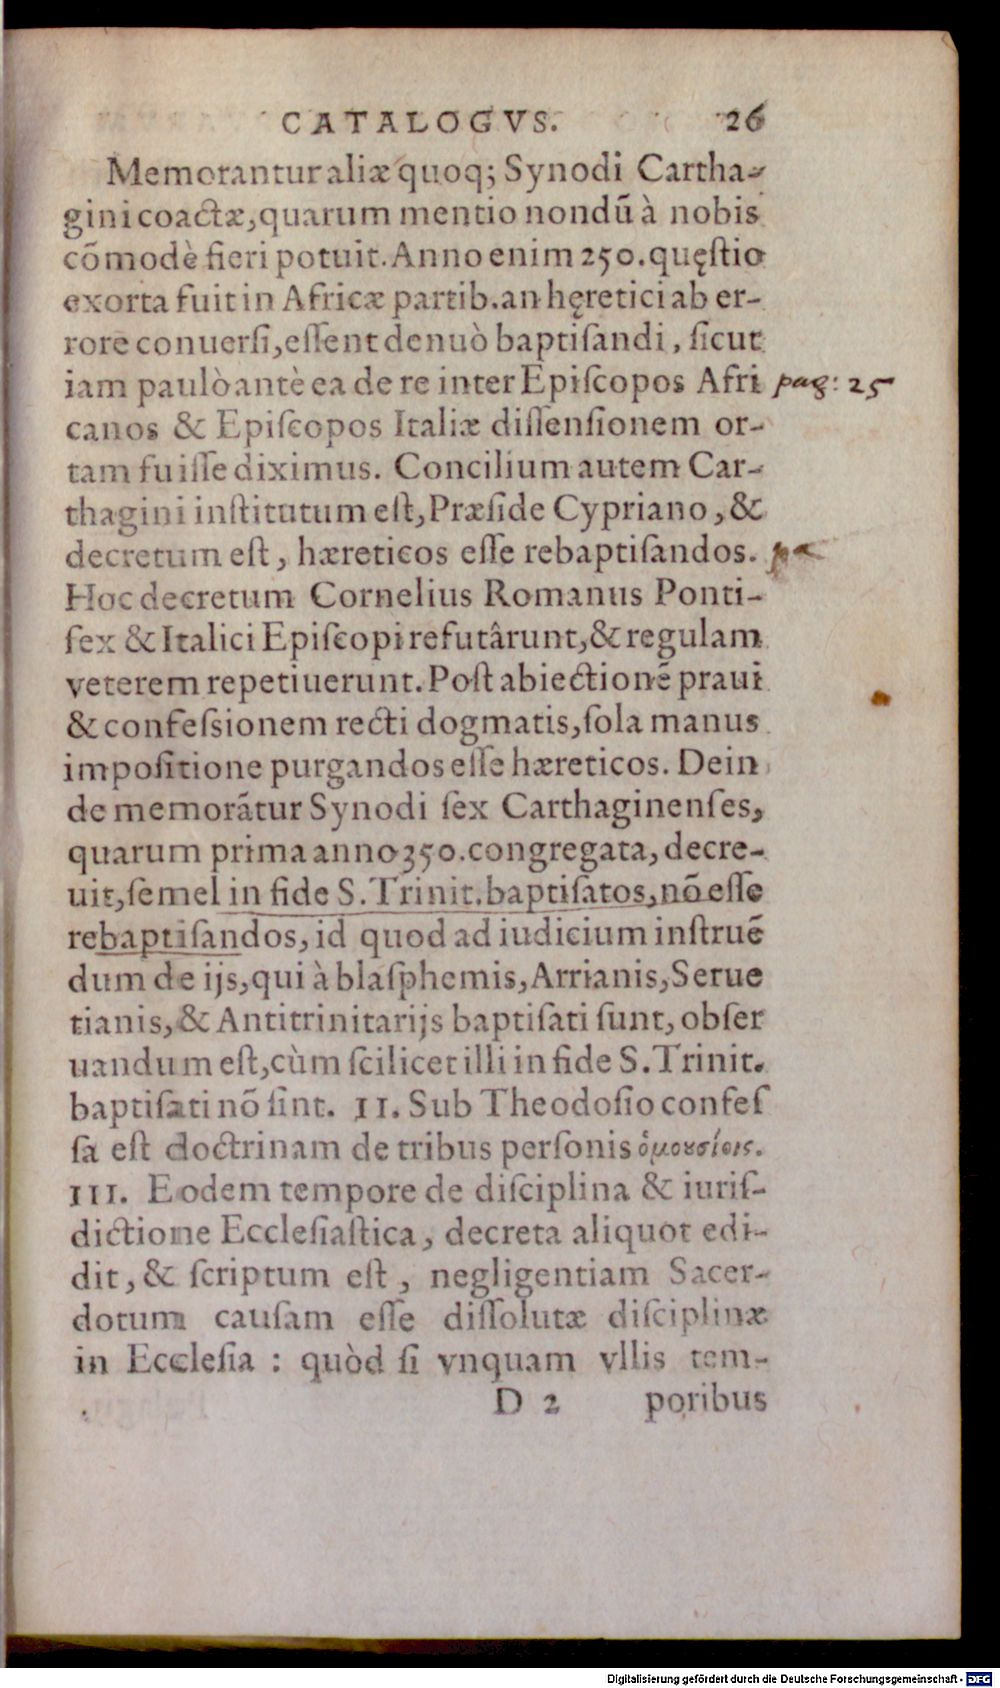 CATALOGVS. 26
Memorantur aliæ quoq; Synodi Cartha-
gini coactæ, quarum mentio nondū à nobis
cōmodè fieri potuit. Anno enim 250. quęstio
exorta fuit in Africæ partib. an hęretici ab er-
rore conuersi, essent denuò baptisandi, sicut
iam paulò antè ea de re inter Episcopos Afri pag: 25
canos & Episcopos Italiæ dissensionem or-
tam fuisse diximus. Concilium autem Car-
thagini institutum est, Præside Cypriano, &
decretum est, hæreticos esse rebaptisandos.
Hoc decretum Cornelius Romanus Ponti-
fex & Italici Episcopi refutârunt, & regulam
veterem repetiuerunt. Post abiectionē praui
& confessionem recti dogmatis, sola manus
impositione purgandos esse hæreticos. Dein
de memorātur Synodi sex Carthaginenses,
quarum prima anno 350. congregata, decre-
uit, semel in fide S. Trinit. baptisatos, nō esse
rebaptisandos, id quod ad iudicium instruē
dum de ijs, qui à blasphemis, Arrianis, Serue
tianis, & Antitrinitarijs baptisati sunt, obser
uandum est, cùm scilicet illi in fide S. Trinit.
baptisati nō sint. II. Sub Theodosio confes
sa est doctrinam de tribus personis ὁμουσίοις.
III. Eodem tempore de disciplina & iuris-
dictione Ecclesiastica, decreta aliquot edi-
dit, & scriptum est, negligentiam Sacer-
dotum causam esse dissolutæ disciplinæ
in Ecclesia : quòd si vnquam vllis tem-
D 2 poribus
Digitalisierung gefördert durch die Deutsche Forschungsgemeinschaft - DFG